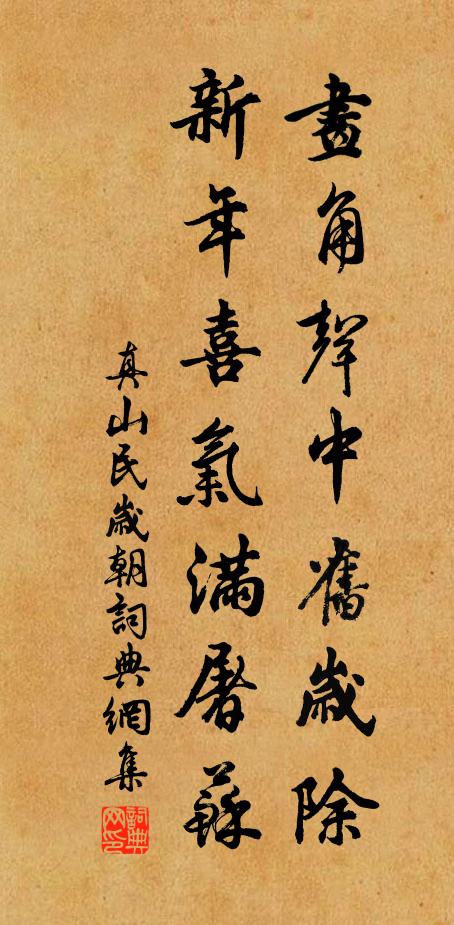 畫角聲中舊歲除
新年喜氣滿屠蘇
真山民歲朝詞典網集
詞典网印